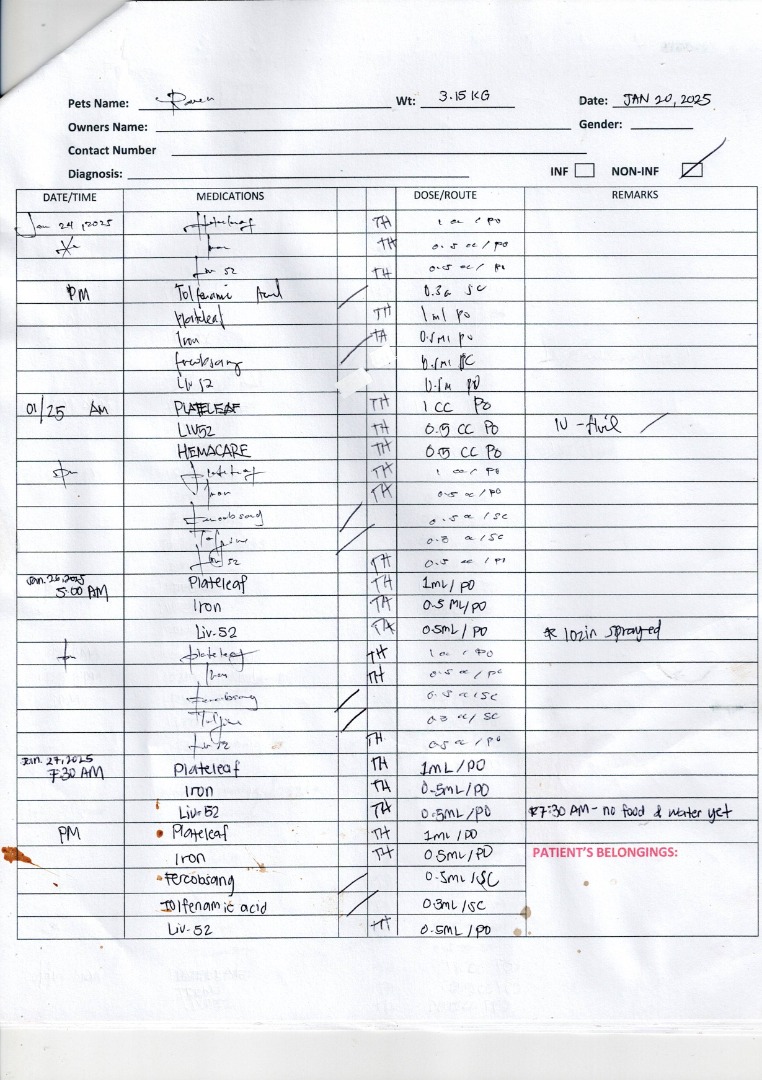 Pets Name: Wt: 3.15 KG Date: JAN 20, 2025
Owners Name: Gender:
Contact Number
Diagnosis: INF NON-INF
DATE/TIME MEDICATIONS DOSE/ROUTE REMARKS
Jan 24, 2025 Plateleaf TH 1 cc / PO
Iron TH 0.5 cc / PO
Liv 52 TH 0.5 cc / PO
PM Tolfenamic Acid SC
Plateleaf TH 1 ml PO
Iron TH 0.5ml PO
Fercobsang 0.5ml SC
Liv 52 0.5ml PO
01/25 AM PLATELEAF TH 1 CC PO
LIV52 TH 0.5 CC PO IV - fluid
HEMACARE TH 0.5 CC PO
Plateleaf TH 1 cc / PO
Iron TH 0.5 cc / PO
Fercobsang 0.5 cc / SC
0.3 cc / SC
Liv 52 TH 0.5 cc / PO
Jan. 26, 2025
5:00 AM Plateleaf TH 1mL / PO
Iron TH 0.5 ML/PO
Liv-52 TH 0.5mL / PO * sprayed
Plateleaf TH 1 cc / PO
Iron TH 0.5 cc / PO
Fercobsang 0.5 cc / SC
0.3 cc / SC
Liv 52 TH 0.5 cc / PO
Jan. 27, 2025
7:30 AM Plateleaf TH 1mL / PO
Iron TH 0.5mL / PO
Liv-52 TH 0.5mL / PO *7:30 AM - no food & water yet
PM Plateleaf TH 1mL / PO
Iron TH 0.5mL / PO PATIENT'S BELONGINGS:
Fercobsang 0.5mL / SC
Tolfenamic acid 0.3mL / SC
Liv-52 TH 0.5mL / PO